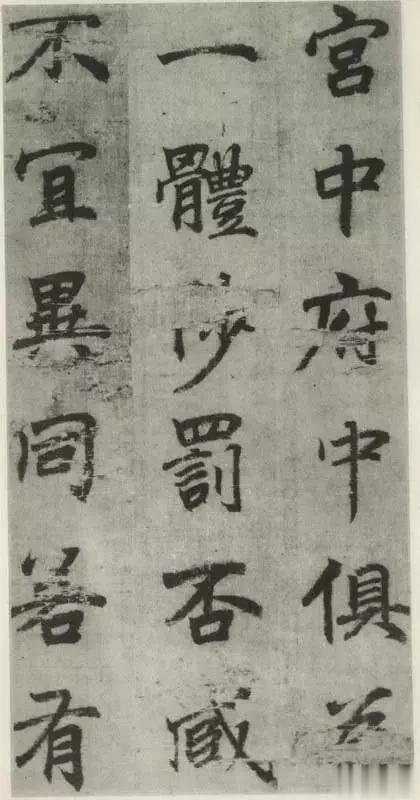 宮中府中俱
一體罰否臧
不宜異同若有